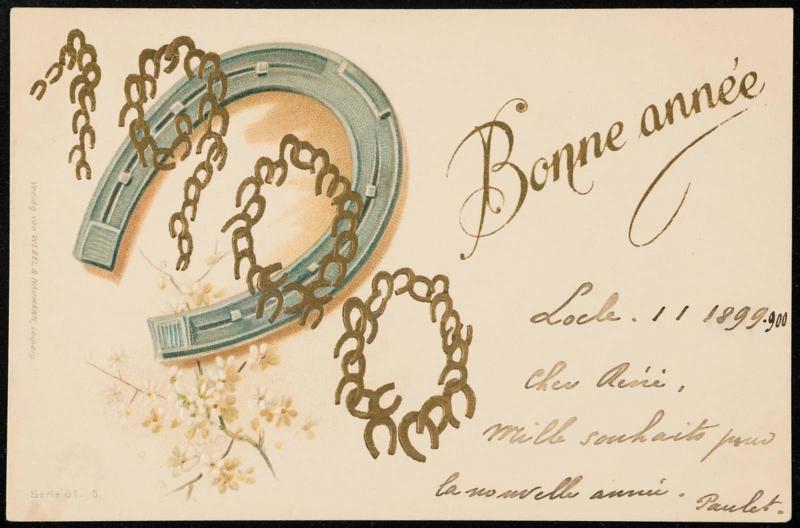 1900
Bonne année
Locle. 11 1899.900
Cher Réné,
Mille souhaits pour
la nouvelle année.
Paulet.
Verlag von WEZEL & NAUMANN, Leipzig.
Serie 61. 5.